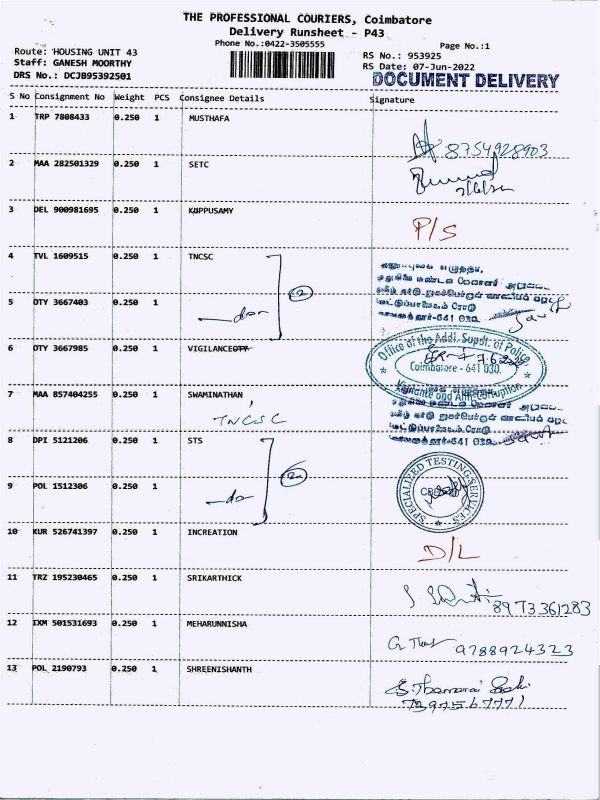 THE PROFESSIONAL COURIERS, Coimbatore
Delivery Runsheet - P43
Phone No.:0422-3505555
Page No.:1
Route: HOUSING UNIT 43
Staff: GANESH MOORTHY
DRS No.: DCJB95392501
RS No.: 953925
RS Date: 07-Jun-2022
DOCUMENT DELIVERY
S No Consignment No Weight PCS Consignee Details Signature
1 TRP 7808433 0.250 1 MUSTHAFA
8754928903
2 MAA 282501329 0.250 1 SETC
3 DEL 900981695 0.250 1 KUPPUSAMY P/S
4 TVL 1609515 0.250 1 TNCSC
5 OTY 3667403 0.250 1 -do- 2
மேட்டுப்பாளையம் ரோடு
641 030.
6 OTY 3667985 0.250 1 VIGILANCE
Office of the Addl. Supdt. of Police,
Coimbatore - 641 030.
Vigilance and Anti-Corruption
7 MAA 857404255 0.250 1 SWAMINATHAN,
TNCSC
641 030.
8 DPI 5121206 0.250 1 STS
9 POL 1512306 0.250 1 -do- 2
SPECIALIZED TESTING SERVICES
10 KUR 526741397 0.250 1 INCREATION D/L
11 TRZ 195230465 0.250 1 SRIKARTHICK
8973361283
12 IXM 501531693 0.250 1 MEHARUNNISHA
9788924323
13 POL 2190793 0.250 1 SHREENISHANTH